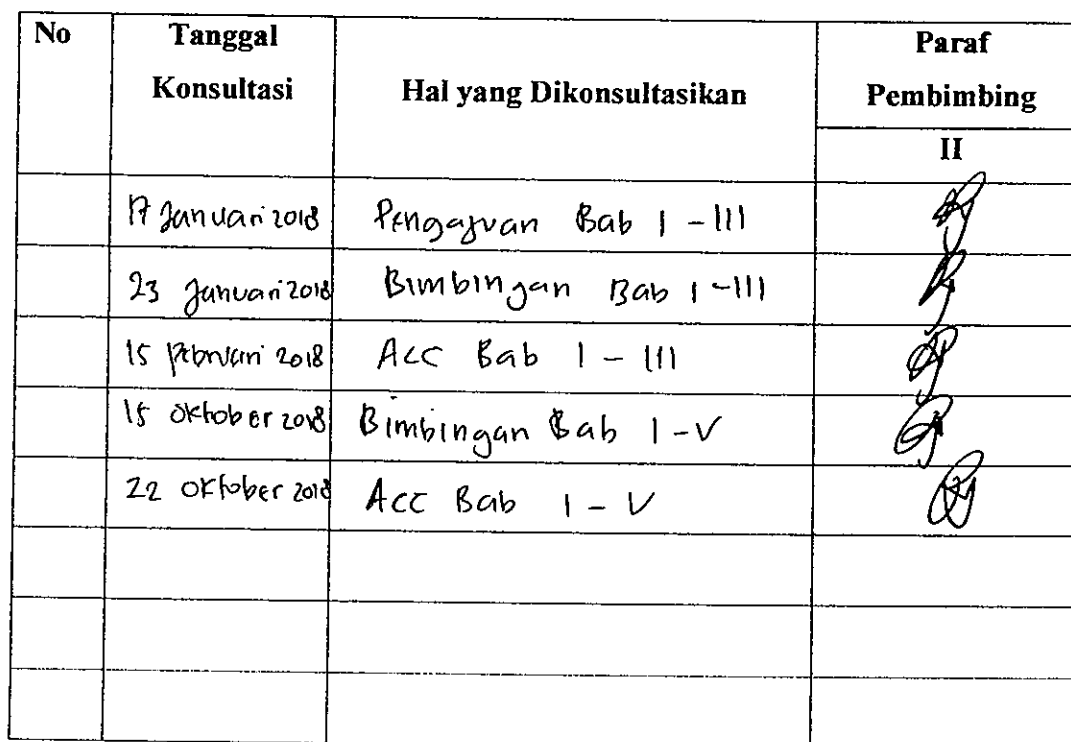 No Tanggal Konsultasi Hal yang Dikonsultasikan Paraf Pembimbing
II
17 Januari 2018 Pengajuan Bab I - III
23 Januari 2018 Bimbingan Bab I - III
15 Februari 2018 Acc Bab I - III
15 Oktober 2018 Bimbingan Bab I - V
22 Oktober 2018 Acc Bab I - V